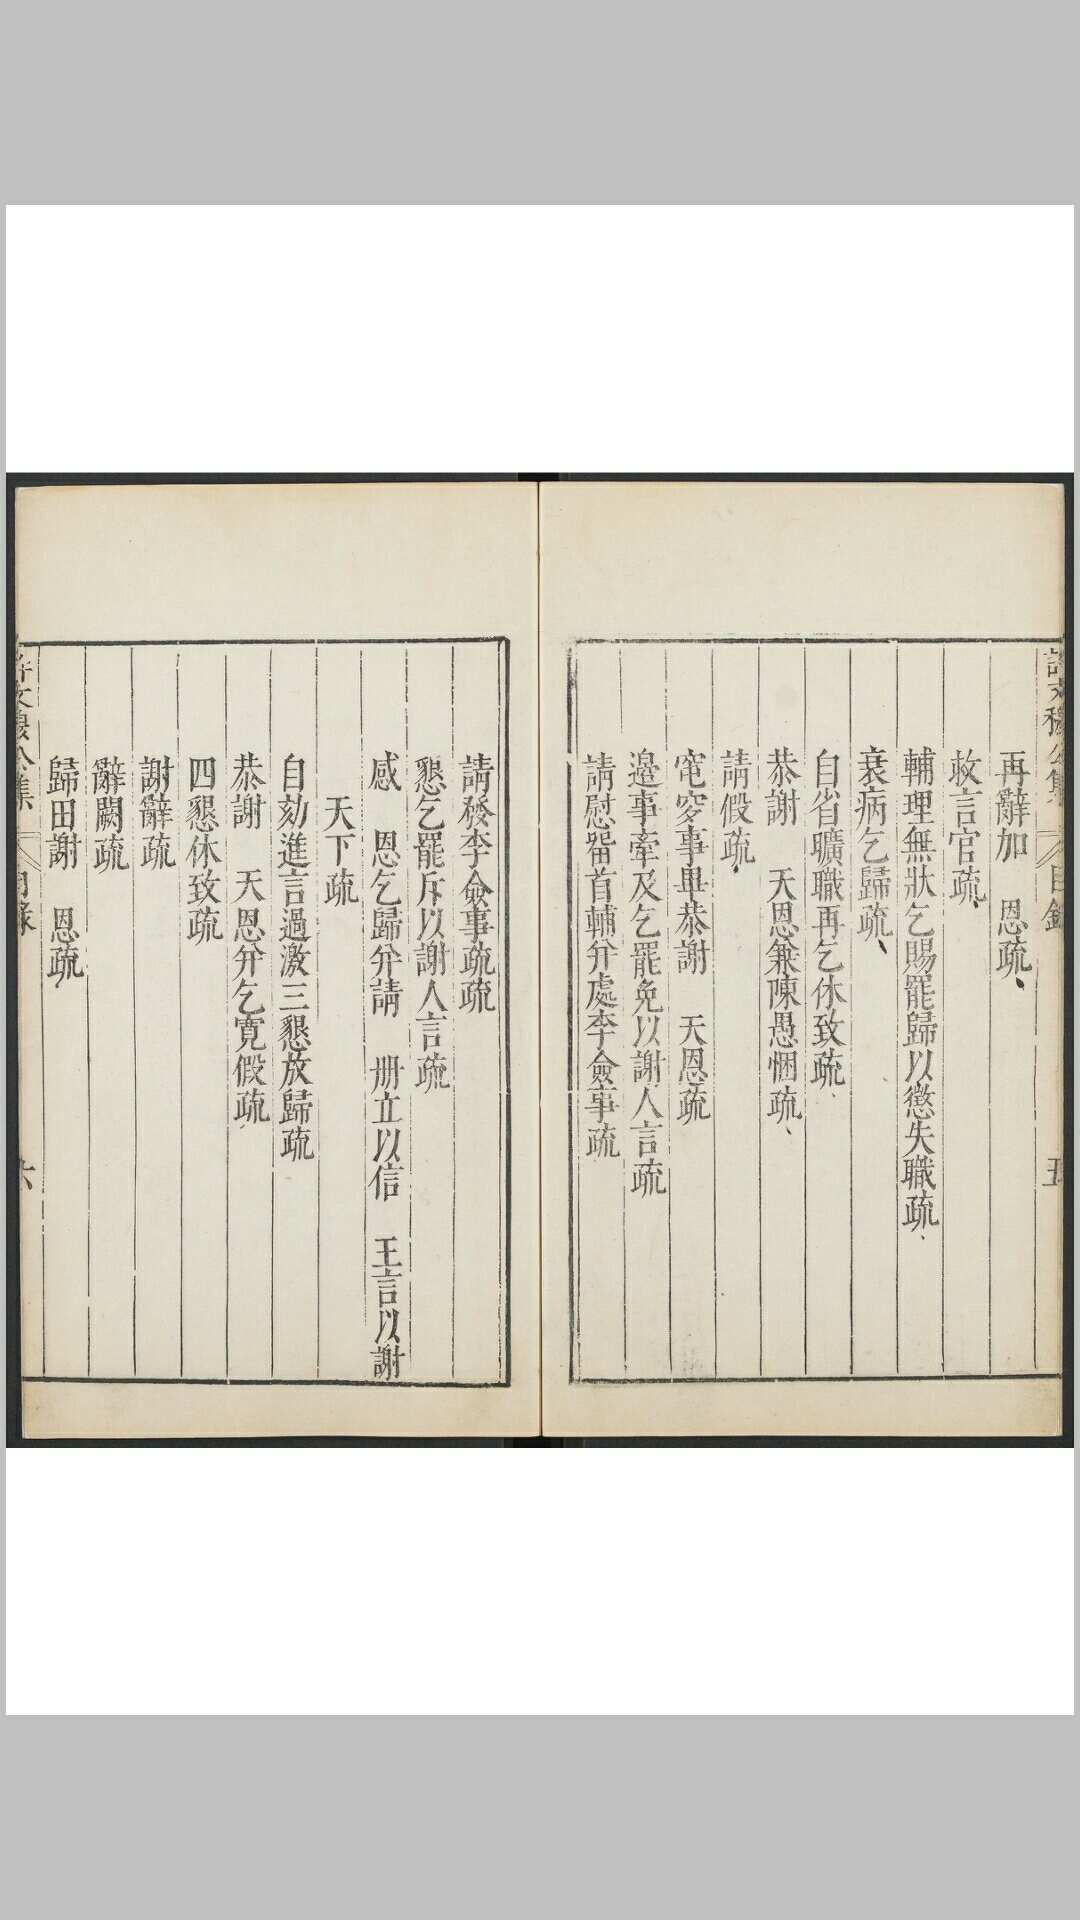 許文穆公集 目錄 五
再辭加　恩疏
救言官疏
輔理無狀乞賜罷歸以懲失職疏
衰病乞歸疏
自省曠職再乞休致疏
恭謝　天恩兼陳愚悃疏
請假疏
窀穸事畢恭謝　天恩疏
邉事牽及乞罷免以謝人言疏
請慰畱首輔并處李僉事疏
請發李僉事疏疏
懇乞罷斥以謝人言疏
感　恩乞歸并請　册立以信　王言以謝
天下疏
自劾進言過激三懇放歸疏
恭謝　天恩并乞寛假疏
四懇休致疏
謝辭疏
辭闕疏
歸田謝　恩疏
許文穆公集 目錄 六